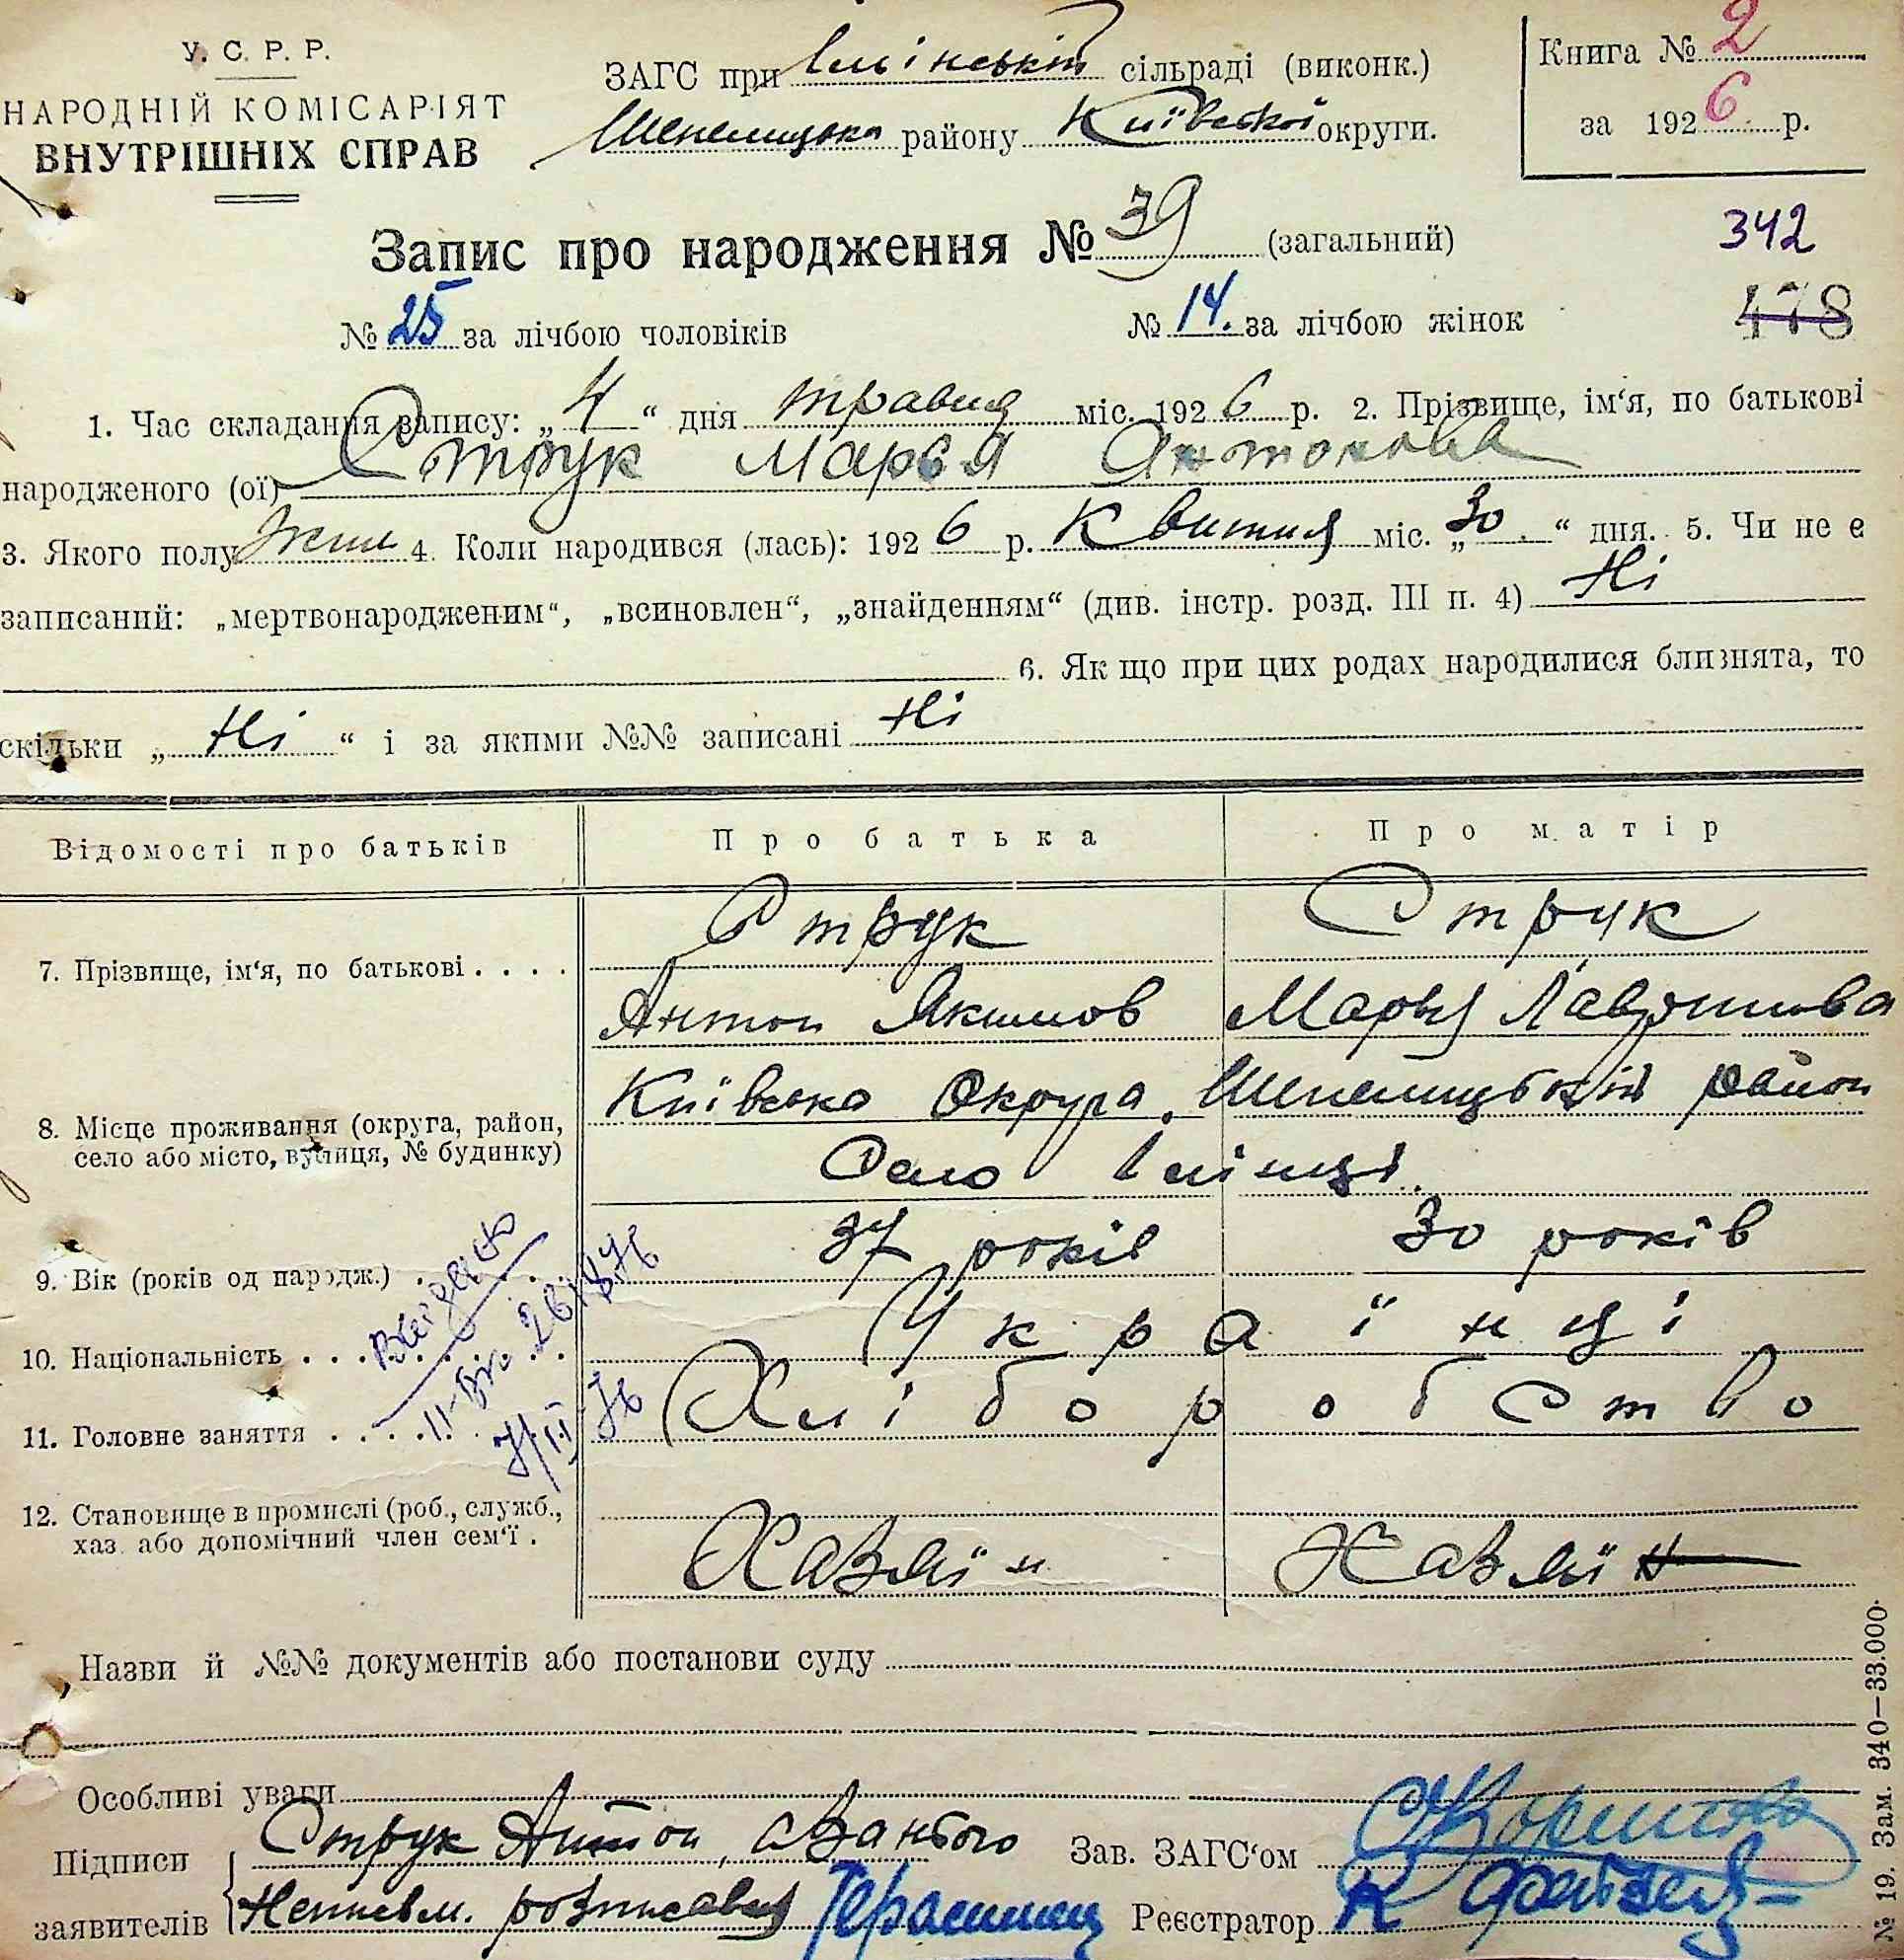 У. С. Р. Р.
НАРОДНІЙ КОМІСАРІЯТ
ВНУТРІШНІХ СПРАВ
ЗАГС при Ільінській сільраді (виконк.)
Шепелицька району Київської округи.
Книга № 2
за 1926 р.
Запис про народження № 39 (загальний)
342
№ 25 за лічбою чоловіків № 14. за лічбою жінок
478
1. Час складання запису: „4“ дня травня міс. 1926 р. 2. Прізвище, ім‘я, по батькові
народженого (ої) Струк Марья Антонова
3. Якого полу жін 4. Коли народився (лась): 1926 р. Квитня міс. „30.“ дня. 5. Чи не є
записаний: „мертвонародженим“, „всиновлен“, „знайденням“ (див. інстр. розд. III п. 4) Ні
6. Як що при цих родах народилися близнята, то
скільки „Ні“ і за якими №№ записані Ні
Відомості про батьків Про батька Про матір
7. Прізвище, ім‘я, по батькові . . . . Струк Струк
Антон Якимов Марья
8. Місце проживання (округа, район, село або місто, вулиця, № будинку) Київська Округа, Шепелицький район
Село Ілінці.
9. Вік (років од народж.) 37 років 30 років
10. Національність Українці
11. Головне заняття Хліборобство
12. Становище в промислі (роб., служб.,
хаз. або допомічний член сем‘ї . Хазяїн Хазяїн
Назви й №№ документів або постанови суду
Особливі уваги
Підписи заявителів Струк Антон,
розписавсь
Зав. ЗАГС‘ом
Реєстратор
№ 19. Зам. 340—33.000.